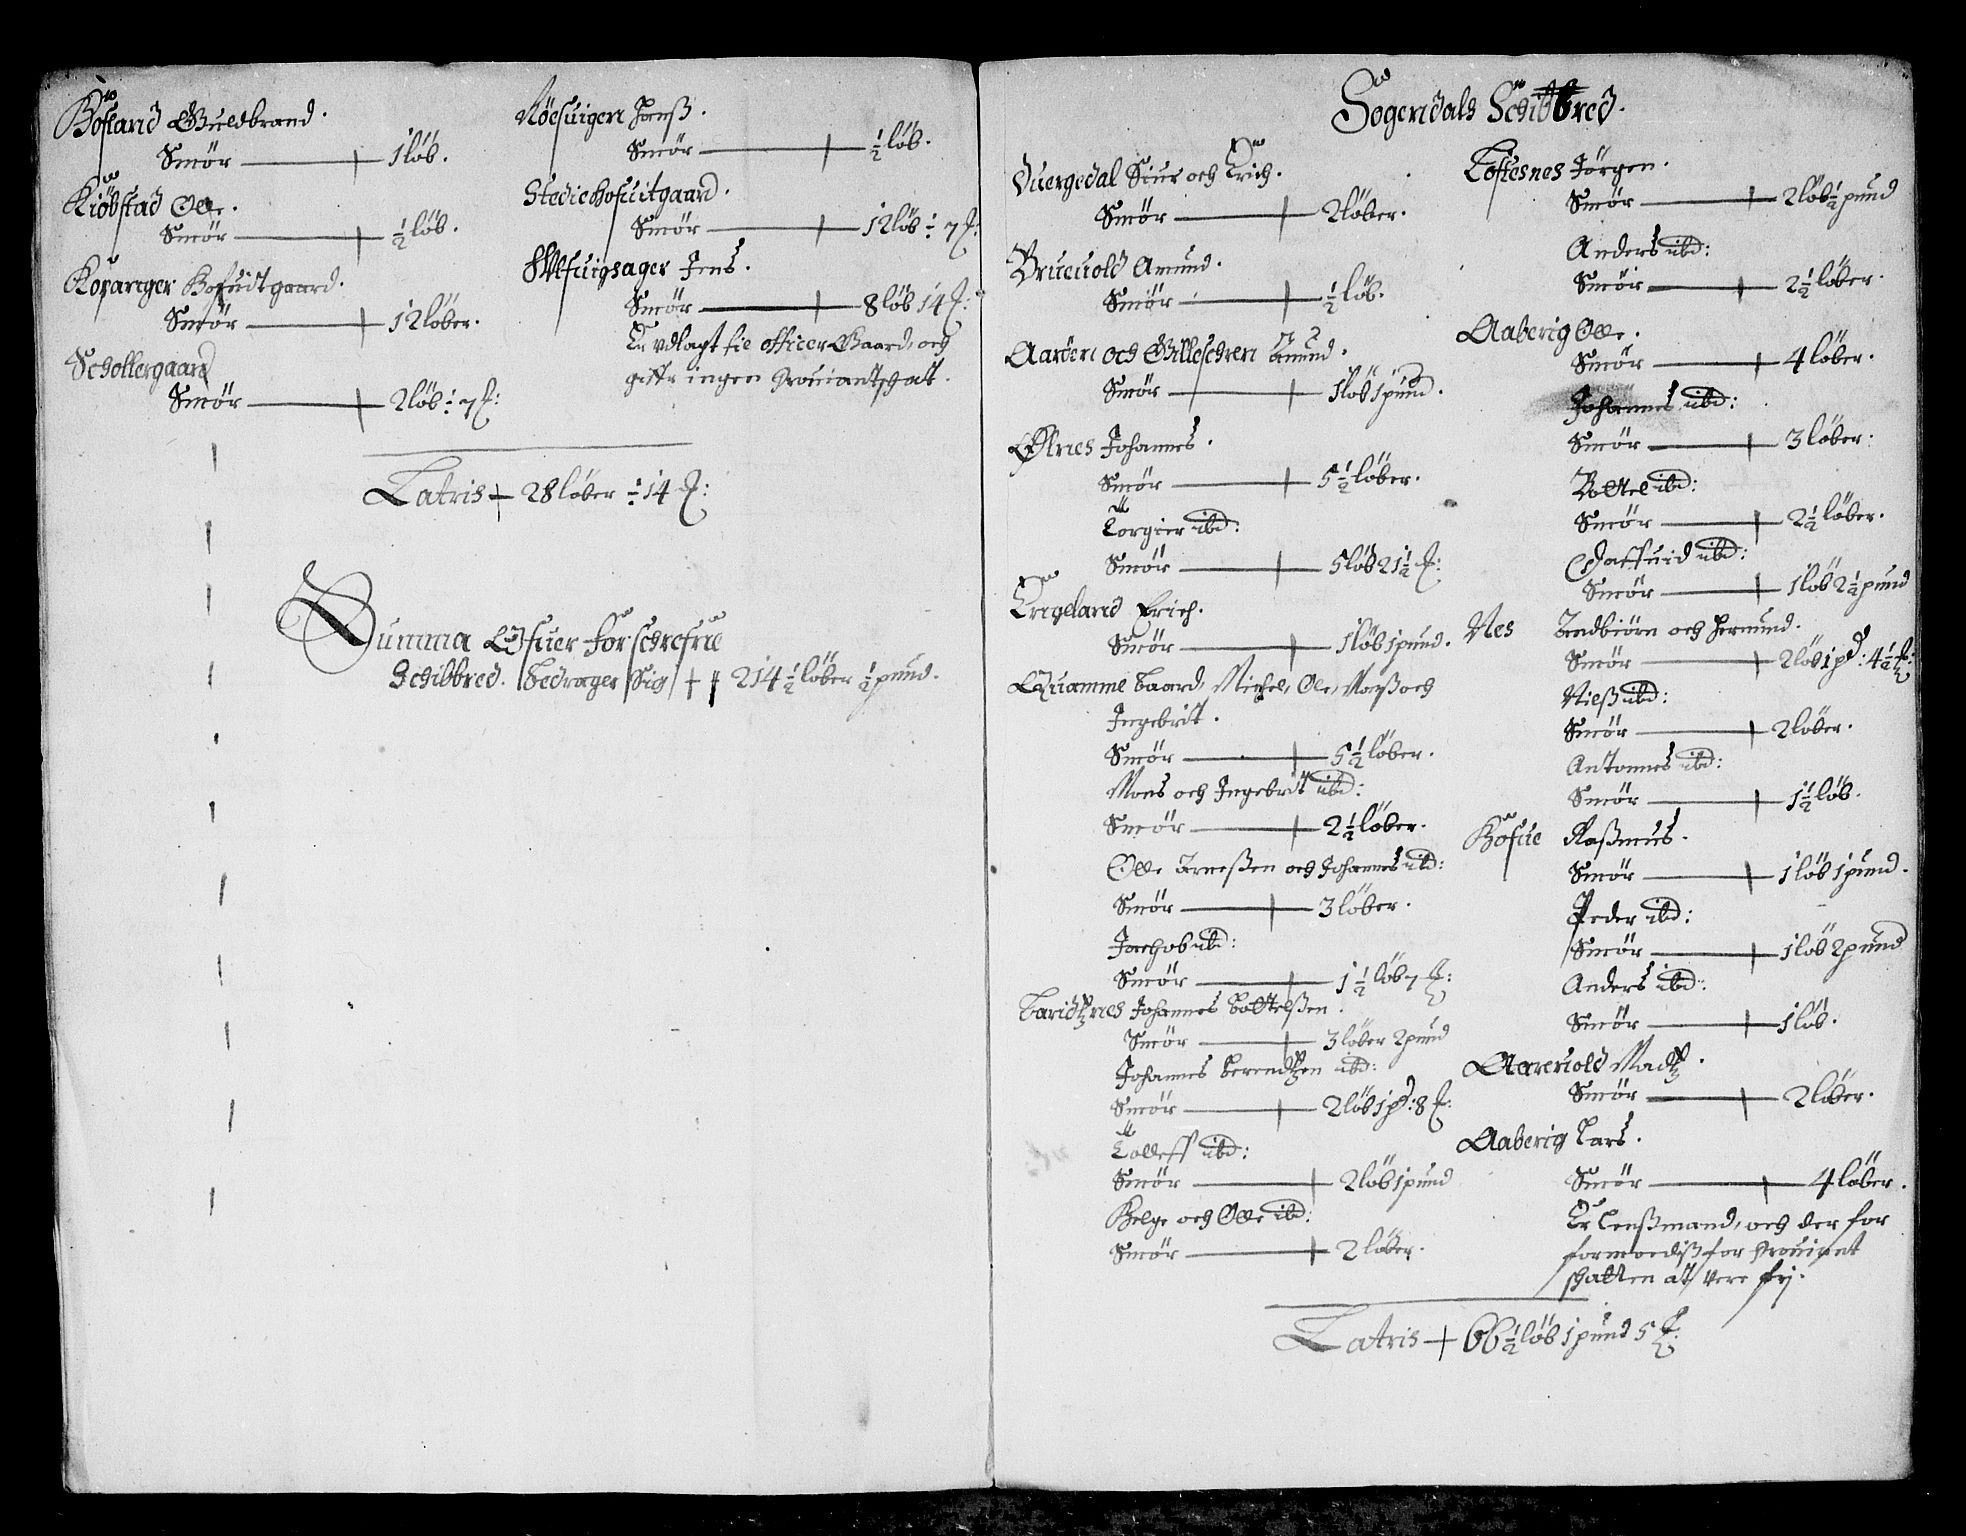 Höfland Guldbrand.
Smör — 1 löb.
Kiöbstad Olle.
Smör — ½ löb.
Kopanger Hofuitgaard.
Smör — 12 löber.
Schollergaard
Smör — 2 löb ÷ 7 ℔:
Nöesuigen Hanß.
Smör — ½ löb.
Stedie hofuitgaard.
Smör — 12 löb ÷ 7 ℔:
Jens.
Smör — 8 löb 14 ℔:
Er vdlagt tie officer Gaard, och
giffr ingen Prouiantschat.
Latris — 28 löber ÷ 14 ℔:
Summa Ofuer for schrefne
Schibbred. bedrager Sig — 214½ löber ½ pund.
Sogendals Schibbred.
Quergedal Siur och Erich.
Smör — 2 löber.
Brueuold Amund.
Smör — ½ löb.
Aaröen och Gilleschren Amund.
Smör — 1 löb 1 pund.
Ølnes Johannes.
Smör — 5½ löber.
Torgier ibd:
Smör — 5 löb 21½ ℔:
Kregeland Erich.
Smör — 1 löb 1 pund.
Quamme baard, Michel, Ole, Monß och
Ingebrit.
Smör — 5½ löber.
Mons och Ingebrit ibd:
Smör — 2½ löber.
Olle Arneßen och Johannes ibd:
Smör — 3 löber.
Jachob ibd:
Smör — 1½ löb 7 ℔:
Johannes bottelßen.
Smör — 3 löber 2 pund
Johannes berendtzen ibd:
Smör — 2 löb 1 pd: 8 ℔:
Tolleff ibd:
Smör — 2 löb 1 pund
Helge och Olle ibd:
Smör — 2 löber.
Loftesnes Jörgen.
Smör — 2 löb ½ pund
Anders ibd:
Smör — 2½ löber.
Aaberig Olle.
Smör — 4 löber.
Johannes ibd:
Smör — 3 löber:
Bottel ibd:
Smör — 2½ löber.
Daffuid ibd:
Smör — 1 löb 2½ pund
Nes Endbiörn och Hermund.
Smör — 2 löb 1 pd: 4½ ℔:
Nielß ibd:
Smör — 2 löber.
Antonnes ibd:
Smör — 1½ löb.
Hofue Raßmus.
Smör — 1 löb 1 pund.
Peder ibd:
Smör — 1 löb 2 pund
Anders ibd:
Smör — 1 löb.
Aareuold Madtz.
Smör — 2 löber.
Aaberig Lars.
Smör — 4 löber.
Er Lenßmand, och der for
formoediß for Prouiant
schatten at vere frj.
Latris — 66½ löb 1 pund 5 ℔: